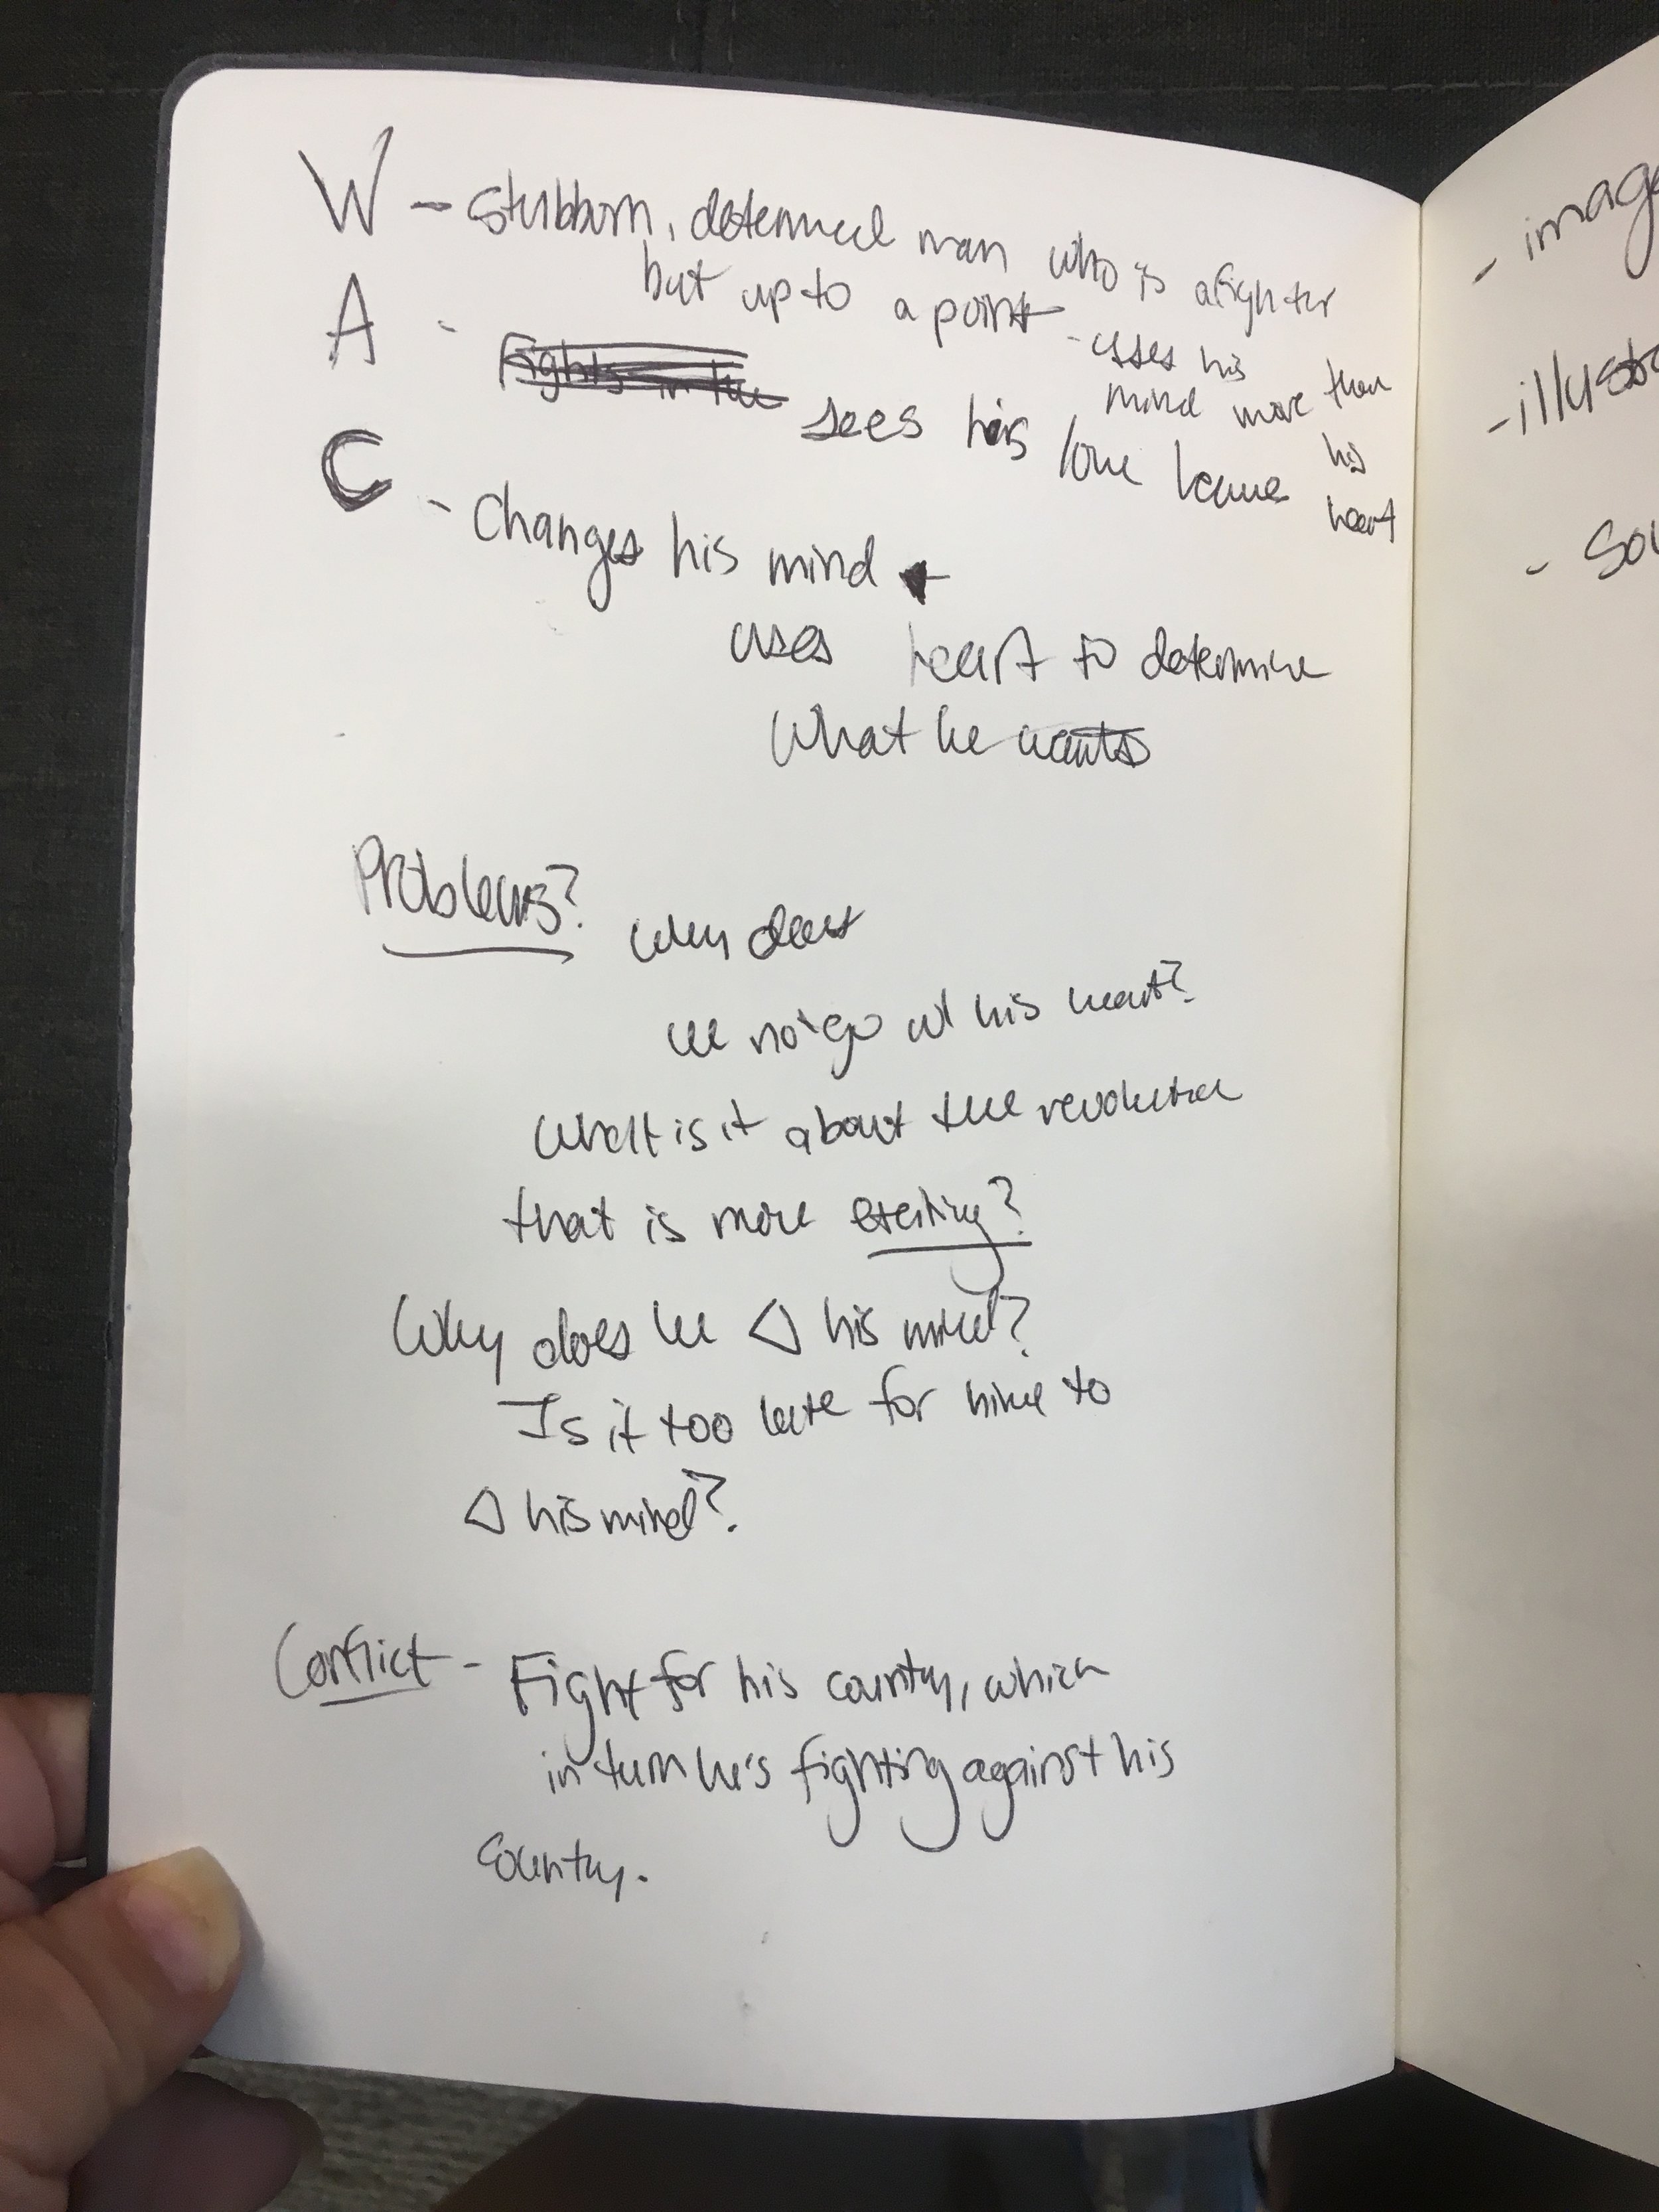 W - stubborn, determined man who is a fighter
but up to a point - uses his
mind more than
his
heart
A - Fights in the sees his love leave
C - changes his mind +
uses heart to determine
what he wants
Problems? Why does
he not go w/ his heart?
What is it about the revolution
that is more exciting?
Why does he △ his mind?
Is it too late for him to
△ his mind?
Conflict - Fight for his country, which
in turn he's fighting against his
country.
- image
- illustra
- sou